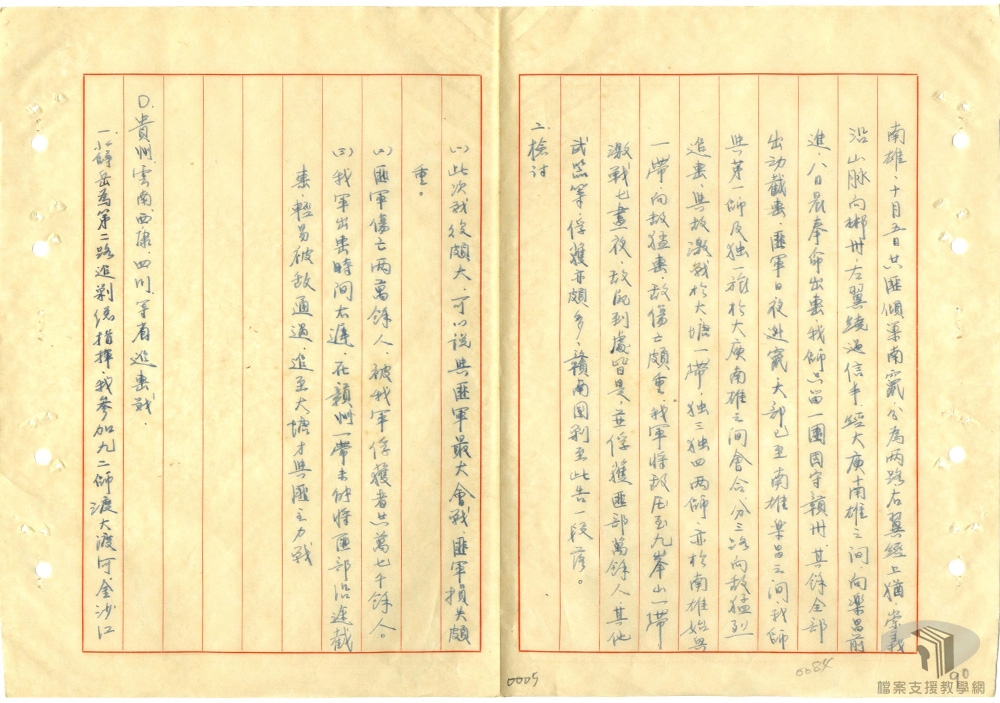 南雄、十月五日共匪傾巢南竄分為兩路右翼經上猶崇義
沿山脈向郴州、左翼繞過信丰、經大庾南雄之間、向樂昌前
進、八日晨奉命出擊、我師只留一團固守贛州、其餘全部
出動截擊匪軍日夜逃竄大部已至南雄樂昌之間我師
與第一師及独一旅於大庾南雄之間會合分三路向敌猛烈
追擊、與敌激战於大塘一帶、独三独四兩師、亦於南雄始興
一帶、向敌猛擊、敌傷亡頗重、我軍将敌压至九峯山一帶
激戰七晝夜、敌屍到處皆是、並俘獲匪部萬餘人其他
武器等、俘獲亦頗多、贛南囲剿至此告一段落。
二、檢討
(一)此次战役頗大、可以說與匪軍最大會戰、匪軍損失頗
重。
(二)匪軍傷亡两萬餘人、被我軍俘獲者共萬七千餘人。
(三)我軍出擊時间太遲、在贛州一帶未能将匪部沿途截
擊、輕易被敌通過、追至大塘才與匪主力戰
D.貴州、雲南西康、四川等省追擊战、
一、薛岳為第二路追剿總指揮、我參加九二師渡大渡河、金沙江
0005
0084
90
檔案支援教學網